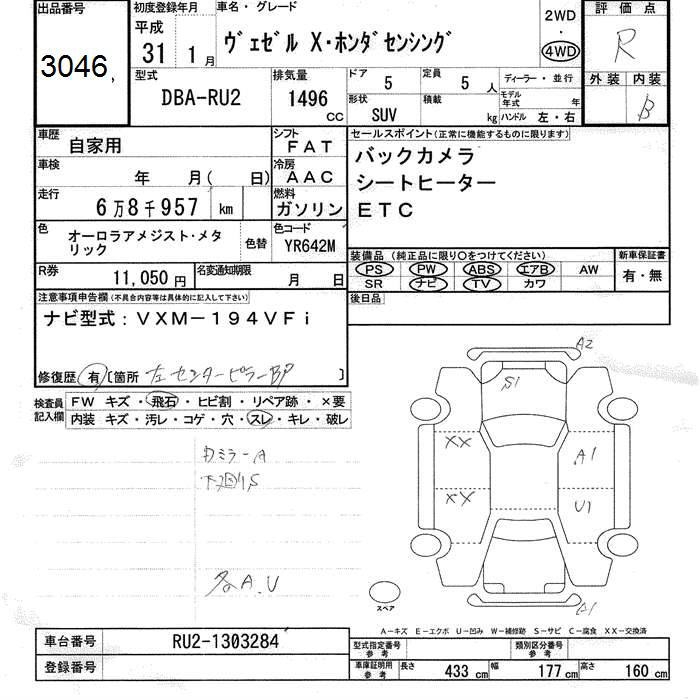 出品番号
3046,
初度登録年月
平成
31 1月
車名・グレード
ヴェゼル X・ホンダセンシング
2WD
・
4WD
評価点
R
外装 内装
B
型式
DBA-RU2
排気量
1496
CC
ドア
5
定員
5 人
形状
SUV
積載
kg
ディーラー・並行
モデル
年式 年
ハンドル 左・右
車歴
自家用
シフト
FAT
車検
年 月( 日)
冷房
AAC
走行
6万8千957 km
燃料
ガソリン
色
オーロラアメジスト・メタ
リック
色替
色コード
YR642M
R券
11,050円
名変通知期限
月 日
セールスポイント(正常に機能するものに限ります)
バックカメラ
シートヒーター
ETC
装備品 (純正品に限り○をつけてください)
PS PW ABS エアB AW
SR ナビ TV カワ
新車保証書
有・無
後日品
注意事項申告欄(不具合内容等は具体的に記入して下さい)
ナビ型式:VXM-194VFi
修復歴 有 [箇所 左センターピラーBP ]
検査員
記入欄
FW キズ・飛石・ヒビ割・リペア跡・×要
内装 キズ・汚レ・コゲ・穴・スレ・キレ・破レ
ミラーA
下廻りS
各A.U
A2
S1
XX
A1
XX
U1
スペア
A1
A-キズ E-エクボ U-凹み W-補修跡 S-サビ C-腐食 XX-交換済
車台番号
RU2-1303284
登録番号
型式指定番号
参考
類別区分番号
参考
車庫証明用
参考
長さ 433 cm 幅 177 cm 高さ 160 cm